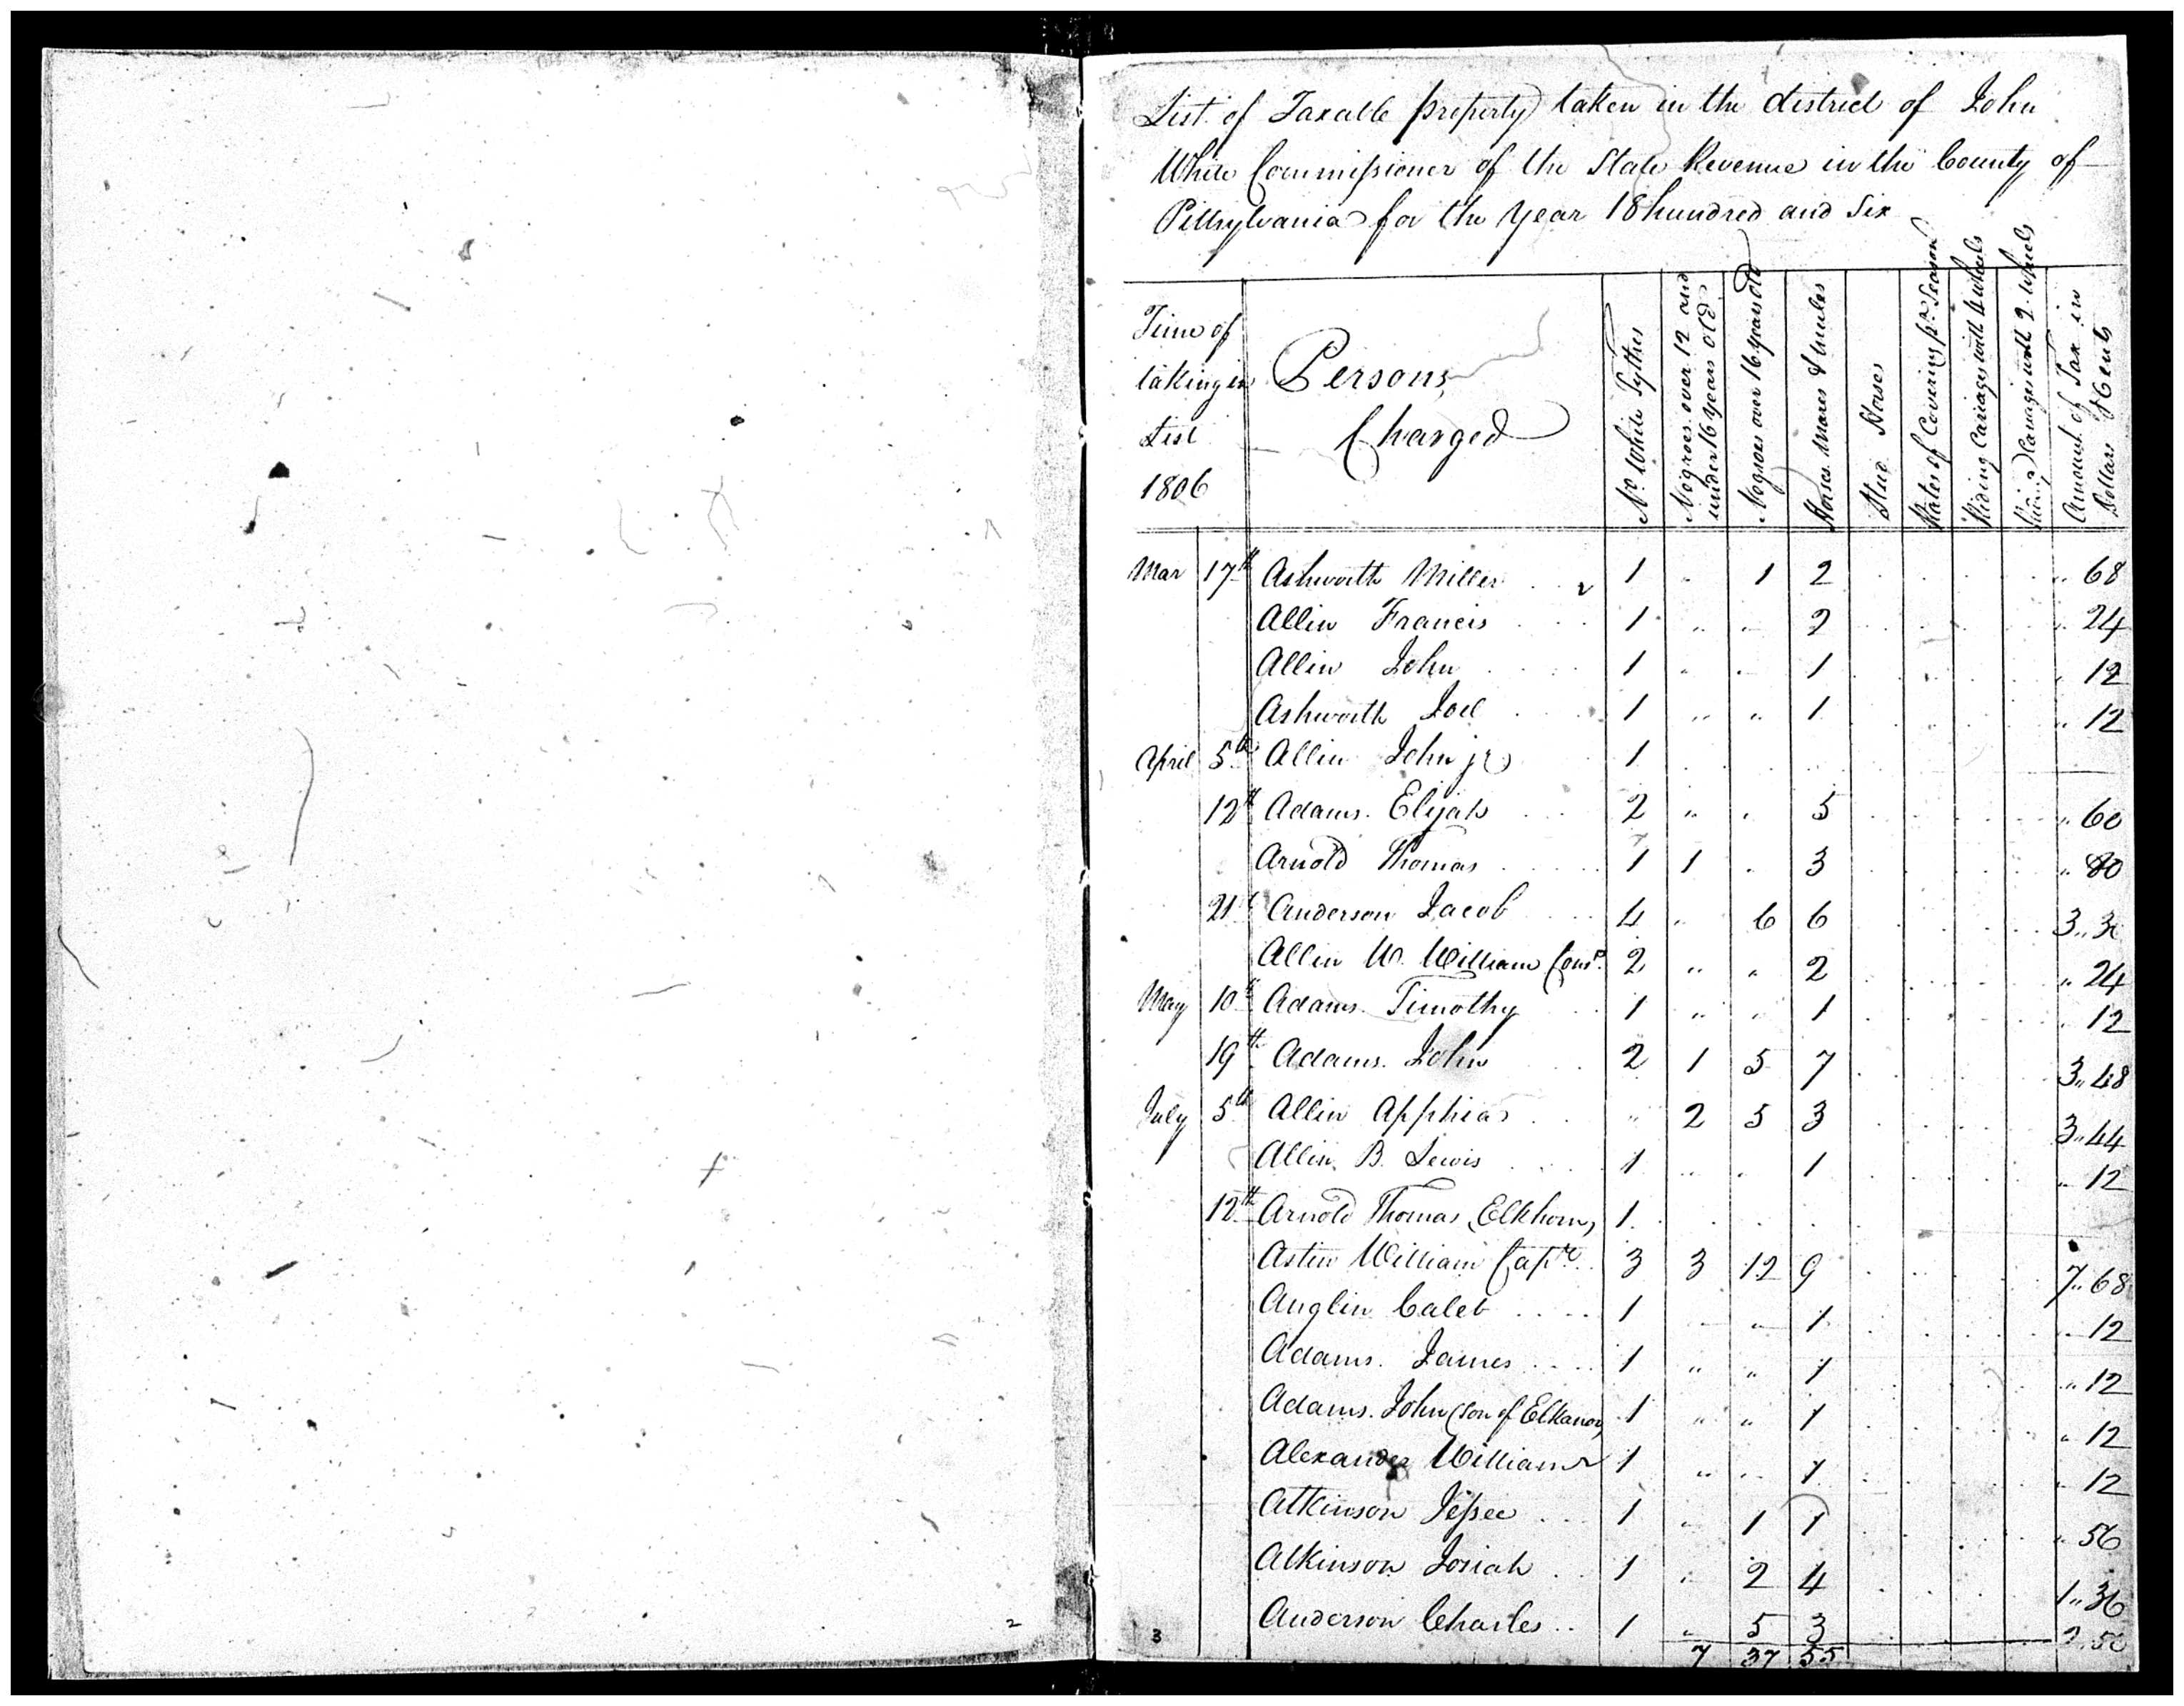 List of Taxable property taken in the district of John
White Commissioner of the State Revenue in the County of
Pittsylvania for the Year 18 hundred and Six
Time of
taking in
List
1806
Persons
Charged
No. White Tythes
Negroes over 12 and
under 16 years old
Negroes over 16 years old
Horses Mares & mules
Stud Horses
Rates of Covering pr. Season
Riding Cariages with 4 wheels
Cariages with 2 wheels
Amount of Tax in
Dollars & Cents
Mar 17th Ashworth Miller 1 " 1 2 " 68
Allin Francis 1 " " 2 " 24
Allin John 1 " " 1 " 12
Ashworth Joel 1 " " 1 " 12
April 5th Allin John jr 1
12th Adams Elijah 2 " " 5 " 60
Arnold Thomas 1 1 " 3 " 80
21st Anderson Jacob 4 " 6 6 3..
Allin W. William Const. 2 " " 2 " 24
May 10th Adams Timothy 1 " " 1 12
19th Adams John 2 1 5 7 3..48
July 5th Allin Apphia " 2 5 3 3..44
Allin B. Lewis 1 " " 1 " 12
12th Arnold Thomas (Elkhorn) 1
Astin William Capt. 3 3 12 9 7..68
Anglin Caleb 1 " " 1 " 12
Adams James 1 " " 1 " 12
Adams John (son of Elkanor) 1 " " 1 " 12
Alexander William 1 " " 1 " 12
Atkinson Jessee 1 " 1 1 " 56
Atkinson Josiah 1 " 2 4 1..36
Anderson Charles 1 " 5 3
7 37 55
2
3